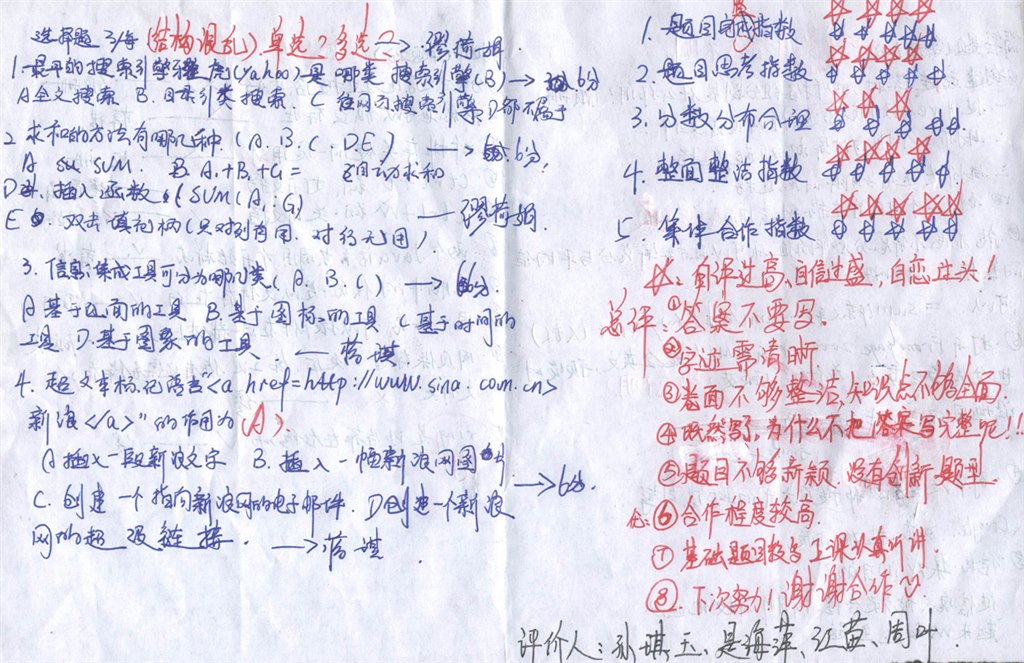 选择题 3/每 (结构混乱) 单选?多选? → 缪荷姐.
1.最早的搜索引擎雅虎(Yahoo)是哪类搜索引擎(B) → 6分
A全文搜索 B.目录索引类搜索. C 在网元搜索引擎 D都不属于
2. 求和的方法有哪几种 (A.B.C.D.E) → 6分.
A SUM. B.A1+B1+C1= 自动求和
D 插入函数 (SUM(A1:G)
E 双击填充柄(只对列有用.对行无用) — 缪荷姐
3.信息集成工具可分为哪几类(A.B.C) → 6分
A基于页面的工具 B.基于图标的工具 C基于时间的
工具 D.基于图象的工具. — 蒋琪.
4.超文本标记语言<a href=http://www.sina.com.cn>
新浪</a>"的作用为(A).
A插入一段新浪文字 B.插入一幅新浪网图片
C.创建一个指向新浪网的电子邮件. D创建一个新浪 → 6分.
网的超级链接. → 蒋琪
1.题目完成指数 ☆☆☆☆
2.题目思考指数 ☆☆☆☆
3.分数分布合理 ☆☆☆
4.整面整洁指数 ☆☆☆
5 集体合作指数 ☆☆☆☆☆
☆:自评过高、自信过盛,自恋过头!
总评:①答案不要写.
②字迹需清晰
③卷面不够整洁,知识点不够全面.
④既然写了,为什么不把答案写完整呢!!
⑤题目不够新颖.没有创新题型
优:⑥合作程度较高.
⑦基础题目较多.上课认真听讲.
⑧.下次努力!谢谢合作
评价人:孙琪玉、是海萍、江苗、周叶